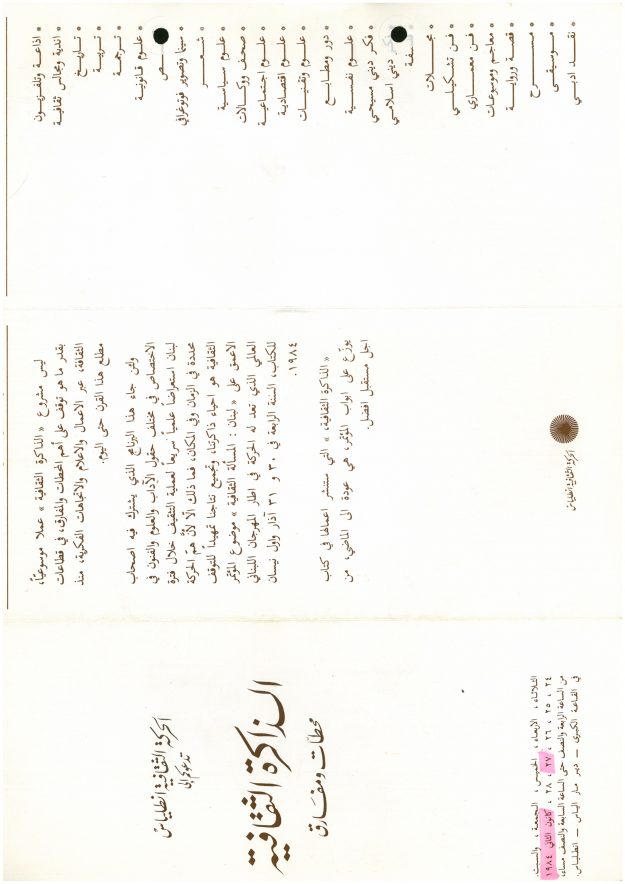 الحركة الثقافية انطلياس
تدعوكم الى
الذاكرة الثقافية
محطات ومفارق
الثلاثاء ، الاربعاء ، الخميس ، الجمعة ، والسبت
٢٤ ، ٢٥ ، ٢٦ ، ٢٧ ، ٢٨ ، كانون الثاني ١٩٨٤
من الساعة الرابعة والنصف حتى الساعة السابعة والنصف مساء،
في القاعة الكبرى – دير مار الياس – انطلياس
ليس مشروع « الذاكرة الثقافية » عملا موسوعياً،
بقدر ما هو توقف على أهم المحطات والمفارق، في قطاعات
الثقافة، عبر الاعمال والاعلام والاتجاهات الفكرية، منذ
مطلع هذا القرن حتى اليوم.
ولئن جاء هذا البرنامج الذي يشترك فيه اصحاب
الاختصاص في مختلف حقول الآداب والعلوم والفنون في
لبنان استعراضاً علمياً سريعاً لعملية التثقيف خلال فترة
محددة في الزمان وفي المكان، فما ذلك الا لأن همّ الحركة
الثقافية هو احياء ذاكرتنا، وتجميع نتاجنا تمهيداً للتوقف
الاعمق على « لبنان : المسألة الثقافية » موضوع المؤتمر
العالمي الذي تعد له الحركة في اطار المهرجان اللبناني
للكتاب، السنة الرابعة في ٣٠ و ٣١ آذار واول نيسان
١٩٨٤.
« الذاكرة الثقافية، » التي ستنشر اعمالها في كتاب
يوزّع على ابواب المؤتمر، هي عودة الى الماضي، من
اجل مستقبل افضل.
الحركة الثقافية انطلياس
* اذاعة وتلفزيون
* اندية ومجالس ثقافية
* تاريخ
* تربية
* ترجمة
* علوم قانونية
* سينما وتصوير فوتوغرافي
* شعر
* علوم سياسية
* صحف ووكالات
* علوم اجتماعية
* علوم اقتصادية
* علوم وتقنيات
* دور ومطابع
* علوم نفسية
* فكر ديني مسيحي
* فكر ديني اسلامي
* مجلات
* فن تشكيلي
* فن معماري
* معاجم وموسوعات
* قصة ورواية
* مسرح
* موسيقى
* نقد ادبي